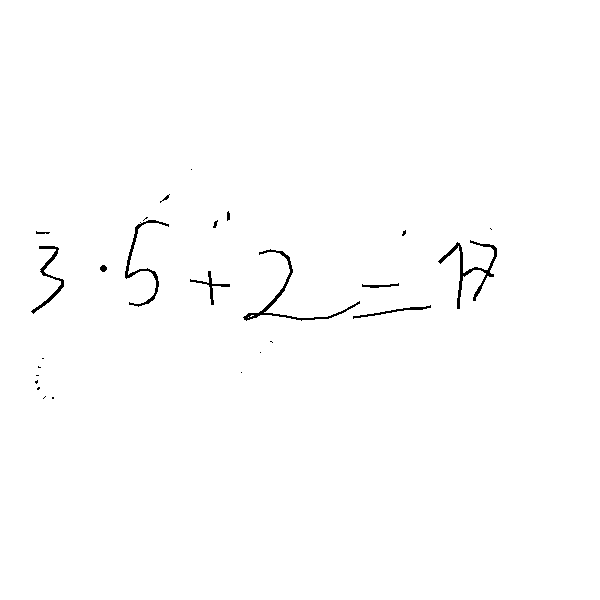 3 · 5 + 2 = 17